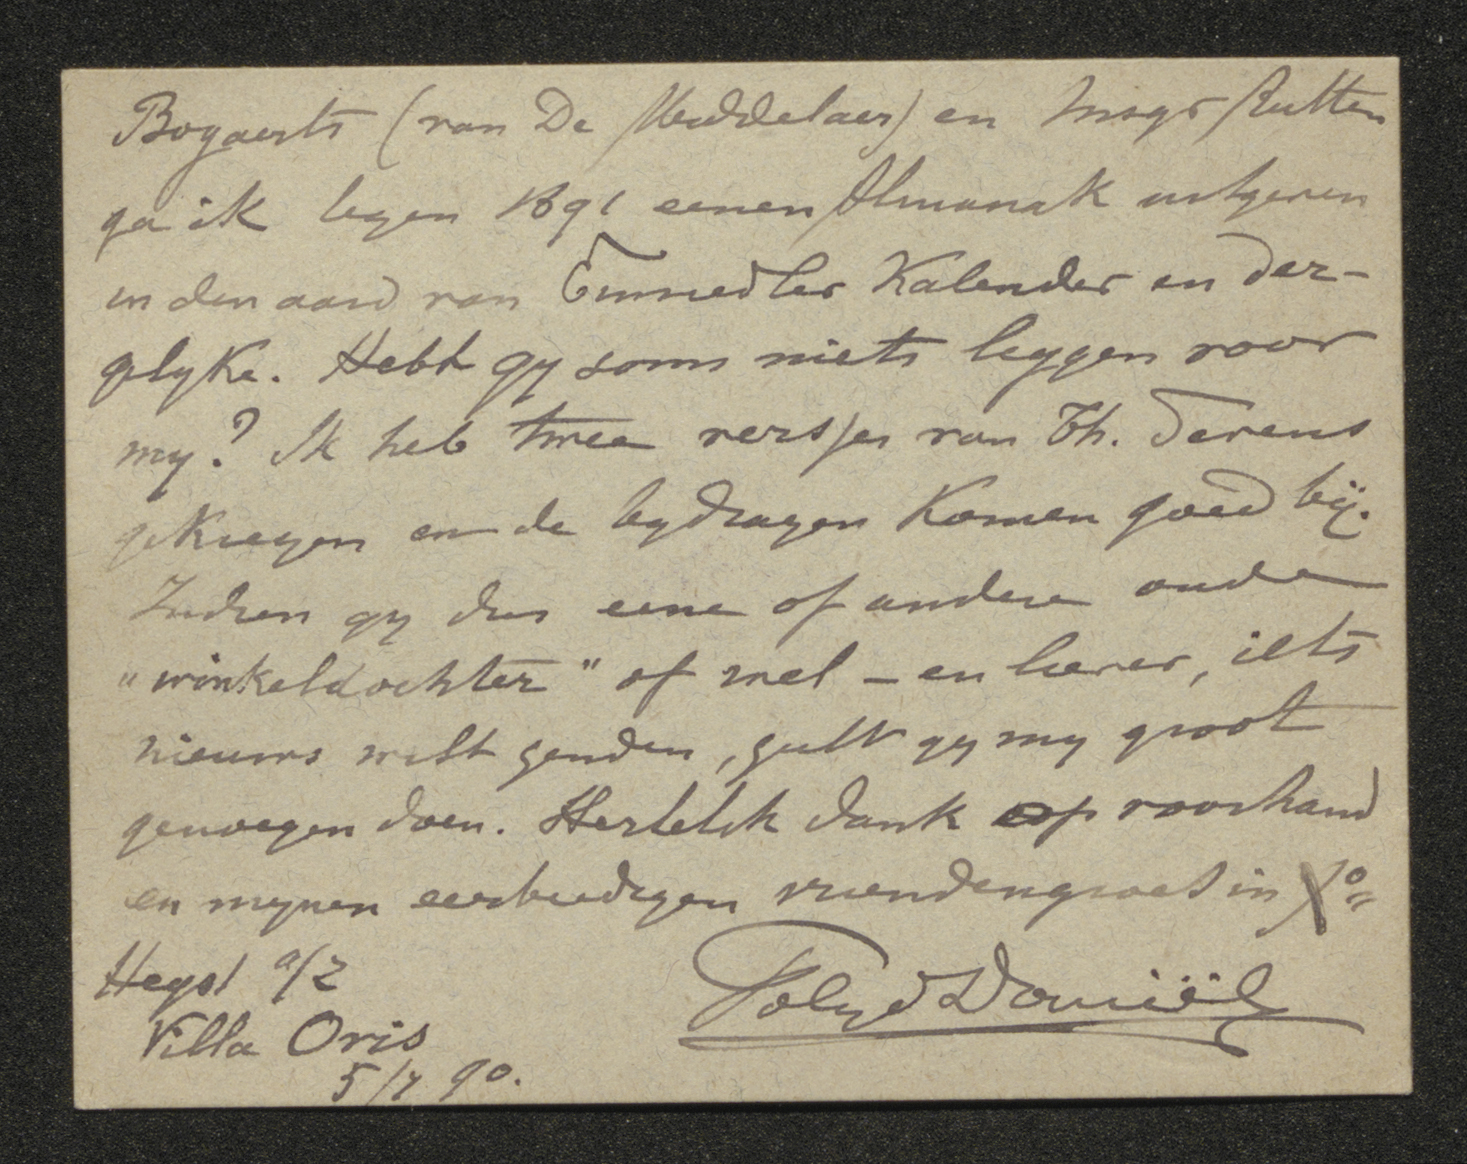 Bogaerts (van De Middelaer) en Msgr Rutten
ga ik tegen 1891 eenen Almanak uitgeven
in den aard van Einsiedler Kalender en der-
gelyke. Hebt gy soms niets liggen voor
my? Ik heb twee versjes van Th. Sevens
gekregen en de bydragen komen goed bij.
Indien gy dus eene of andere oude
"winkeldochter" of wel – en liever, iets
nieuws wilt zenden, zult gy my groot
genoegen doen. Hertelik dank op voorhand
en mynen eerbiedigen vriendengroet in Xº
Heyst a/Z
Villa Oris
5/7 90.
Polyd Daniëls